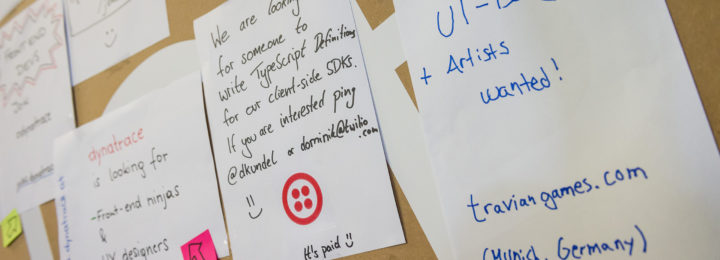 FRONT-END
DEVS
dynatrace
is looking for
-Front-end ninjas
&
UX designers
dynatrace
We are looking
for someone to
write TypeScript Definitions
for our client-side SDKs.
If you are interested ping
@dkundel or dominik@twilio
.com
=)
It's paid :)
+ Artists
wanted!
traviangames.com
(Munich, Germany)